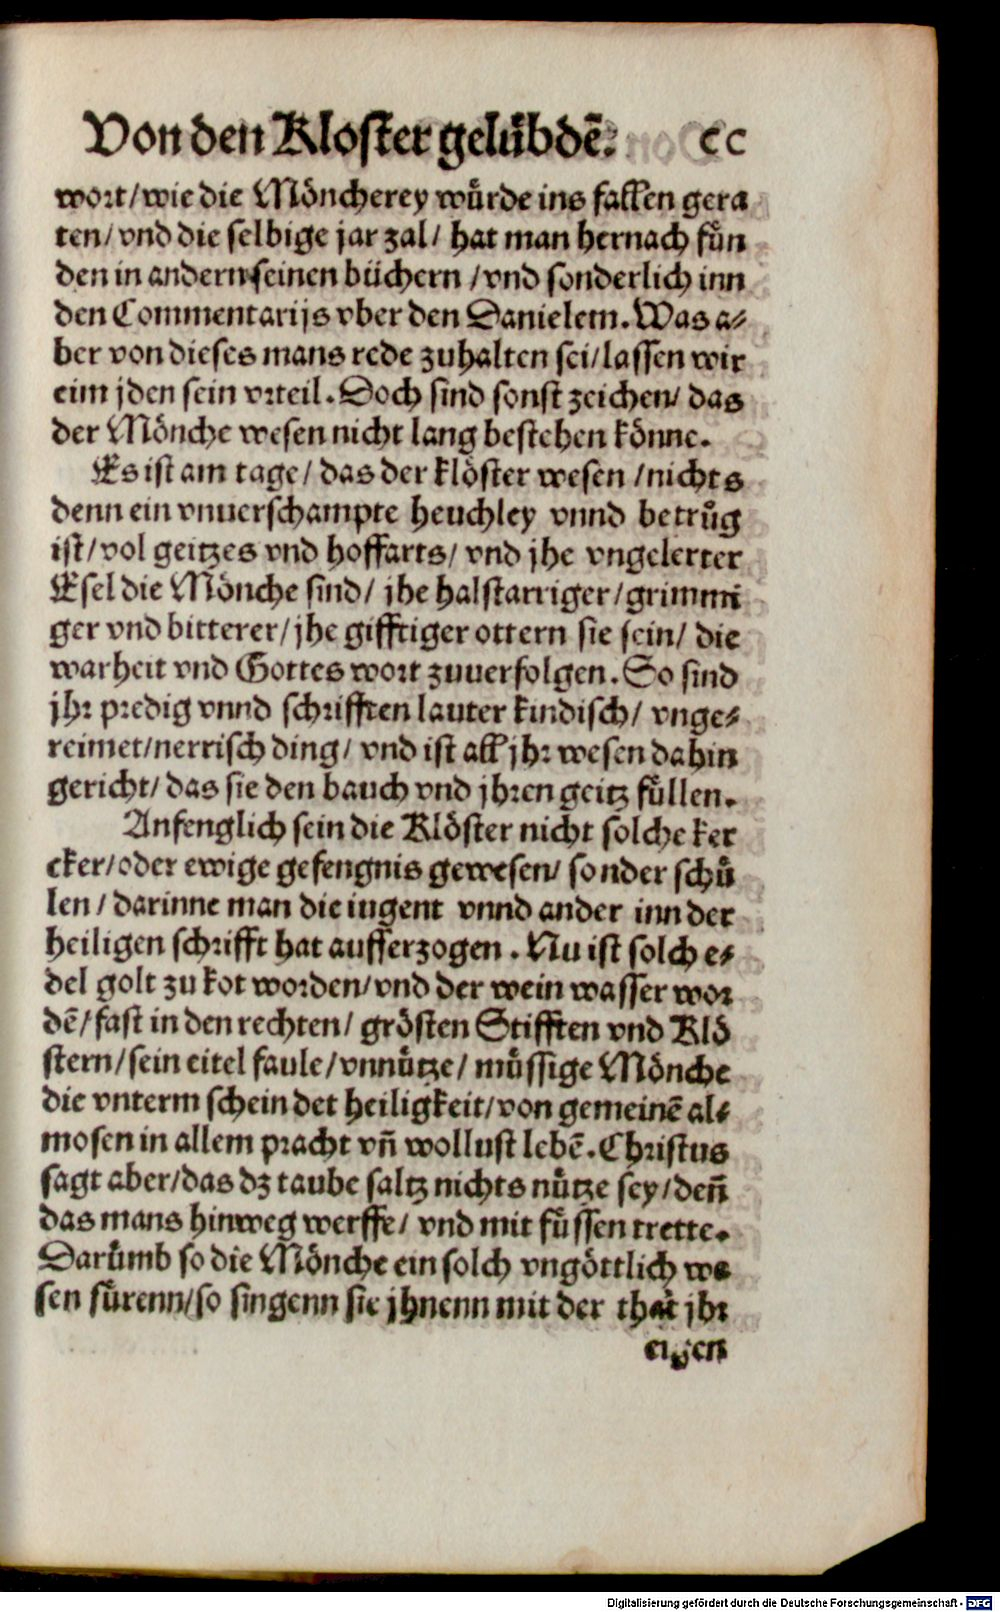 Von den Kloster gelübdē. CC
wort/wie die Möncherey würde ins fallen gera
ten/vnd die selbige jar zal/ hat man hernach fůn
den in andern seinen büchern /vnd sonderlich inn
den Commentarijs vber den Danielem. Was a⸗
ber von dieses mans rede zuhalten sei/lassen wir
eim jden sein vrteil. Doch sind sonst zeichen/ das
der Mönche wesen nicht lang bestehen könne.
Es ist am tage/ das der klöster wesen /nichts
denn ein vnuerschampte heuchley vnnd betrůg
ist/vol geitzes vnd hoffarts/ vnd jhe vngelerter
Esel die Mönche sind/ jhe halstarriger/grimmi
ger vnd bitterer/jhe gifftiger ottern sie sein/ die
warheit vnd Gottes wort zuuerfolgen. So sind
jhr predig vnnd schrifften lauter kindisch/ vnge⸗
reimet/nerrisch ding/ vnd ist all jhr wesen dahin
gericht/ das sie den bauch vnd jhren geitz füllen.
Anfenglich sein die Klöster nicht solche ker
cker/oder ewige gefengnis gewesen/ sonder schů
len / darinne man die iugent vnnd ander inn der
heiligen schrifft hat aufferzogen. Nu ist solch e⸗
del golt zu kot worden/vnd der wein wasser wor
dē/fast in den rechten/ grösten Stifften vnd Klö
stern/sein eitel faule/vnnütze/ müssige Mönche
die vnterm schein det heiligkeit/von gemeinē al⸗
mosen in allem pracht vn̄ wollust lebē. Christus
sagt aber/das dz taube saltz nichts nütze sey/den̄
das mans hinweg werffe/ vnd mit füssen trette.
Darůmb so die Mönche ein solch vngöttlich we
sen fürenn/so singenn sie jhnenn mit der that jhr
eigen
Digitalisierung gefördert durch die Deutsche Forschungsgemeinschaft - DFG